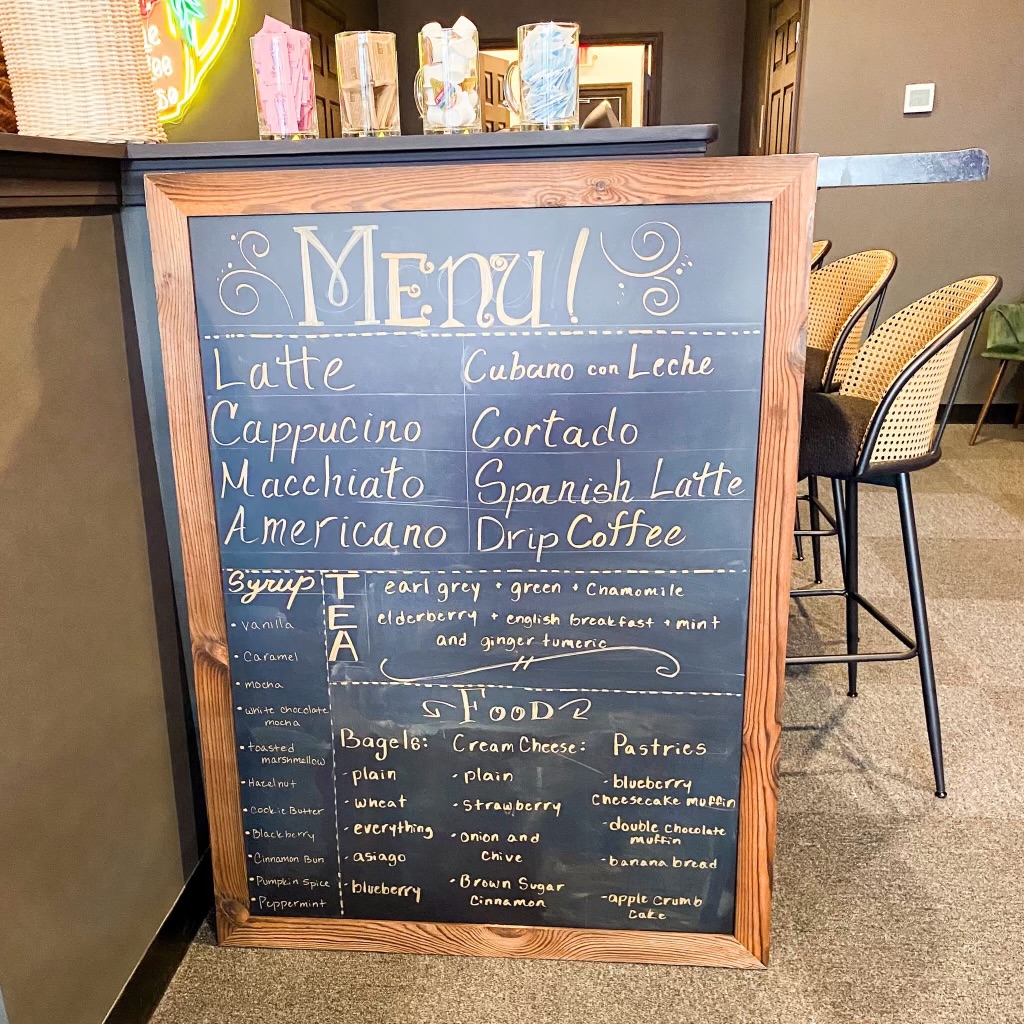 Menu!
Latte
Cubano con Leche
Cappucino
Cortado
Macchiato
Spanish Latte
Americano
Drip Coffee
Syrup
• vanilla
• Caramel
• mocha
• white chocolate
mocha
• toasted
marshmallow
• Hazelnut
• Cookie Butter
• Blackberry
• Cinnamon Bun
• Pumpkin Spice
• Peppermint
TEA
earl grey + green + chamomile
elderberry + english breakfast + mint
and ginger tumeric
Food
Bagels:
- plain
- wheat
- everything
- asiago
- blueberry
Cream Cheese:
- plain
- strawberry
- onion and
chive
- Brown Sugar
Cinnamon
Pastries
- blueberry
cheesecake muffin
- double chocolate
muffin
- banana bread
- apple crumb
cake